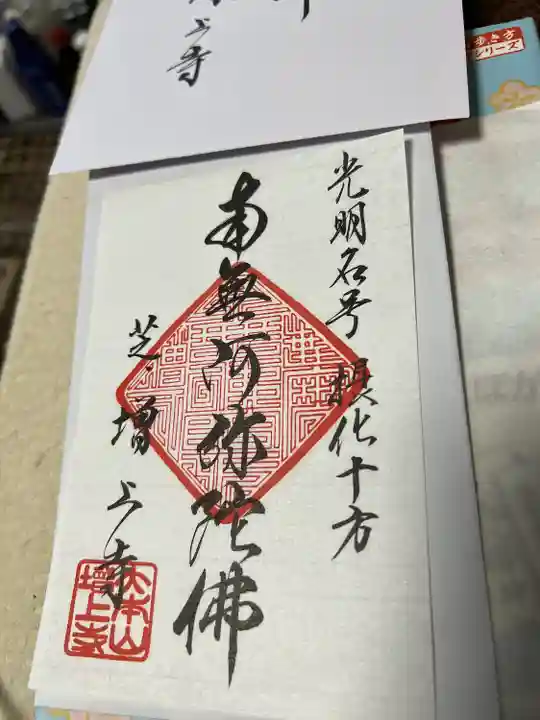 上寺
歩き方
シリーズ
光明名号 摂化十方
南無阿弥陀佛
芝・増上寺
大本山
増上寺